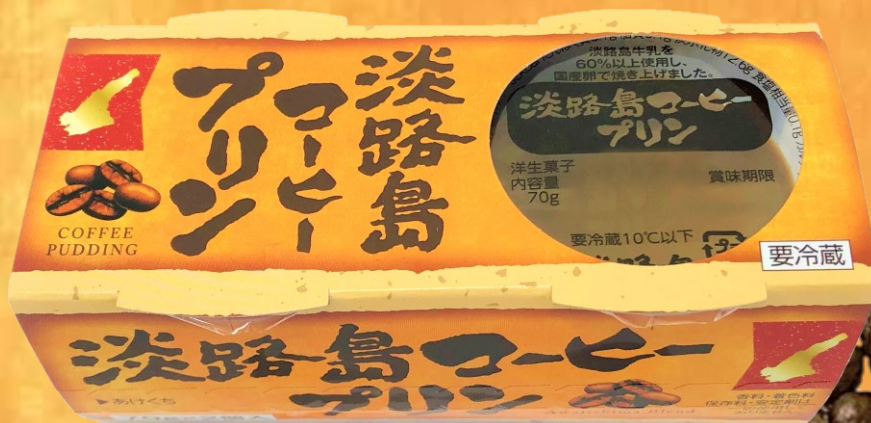 淡路島
コーヒー
プリン
COFFEE
PUDDING
淡路島牛乳を
60%以上使用し、
国産卵で焼き上げました。
淡路島コーヒー
プリン
洋生菓子
内容量
70g
賞味期限
要冷蔵10℃以下
要冷蔵
淡路島コーヒー
プリン
▶あけくち
香料・着色料
保存料・安定剤は